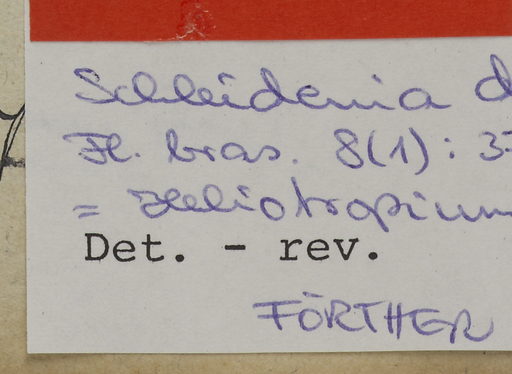 Schleidenia d
Fl. bras. 8(1): 3
= Heliotropium
Det. - rev.
FÖRTHER